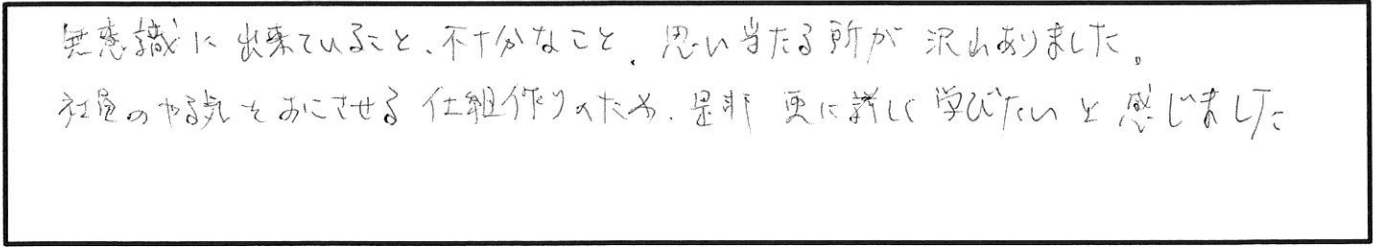 無意識に出来ていること、不十分なこと、思い当たる所が沢山ありました。
社員のやる気をおこさせる仕組作りのため、是非更に詳しく学びたいと感じました